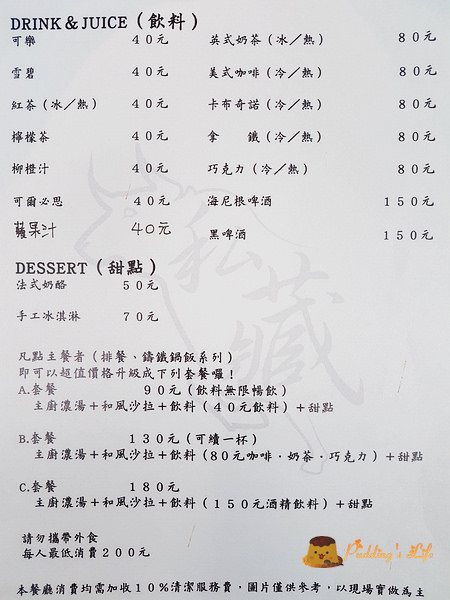 DRINK＆JUICE（飲料）
可樂 40元 英式奶茶（冰／熱） 80元
雪碧 40元 美式咖啡（冷／熱） 80元
紅茶（冰／熱） 40元 卡布奇諾（冷／熱） 80元
檸檬茶 40元 拿 鐵（冷／熱） 80元
柳橙汁 40元 巧克力（冷／熱） 80元
可爾必思 40元 海尼根啤酒 150元
蘋果汁 40元 黑啤酒 150元
私藏
DESSERT（甜點）
法式奶酪 50元
手工冰淇淋 70元
凡點主餐者（排餐、鑄鐵鍋飯系列）
即可以超值價格升級成下列套餐囉！
A.套餐 90元（飲料無限暢飲）
主廚濃湯＋和風沙拉＋飲料（40元飲料）＋甜點
B.套餐 130元（可續一杯）
主廚濃湯＋和風沙拉＋飲料（80元咖啡．奶茶．巧克力）＋甜點
C.套餐 180元
主廚濃湯＋和風沙拉＋飲料（150元酒精飲料）＋甜點
請勿攜帶外食
每人最低消費200元
Pudding's Life
本餐廳消費均需加收10％清潔服務費，圖片僅供參考，以現場實做為主